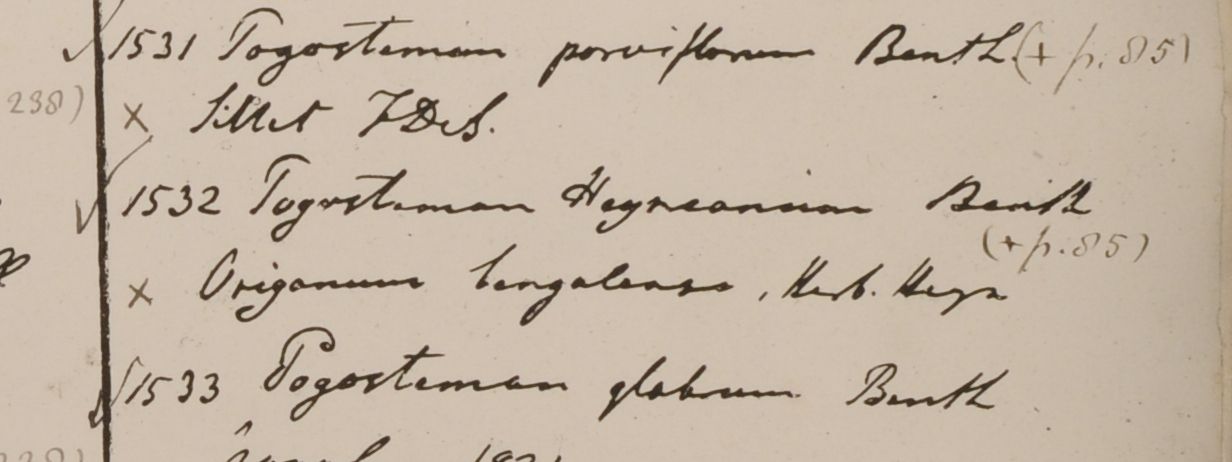 ✓ 1531 Pogostemon parviflorum Benth. (+ p. 85)
238) × Sillet FDeS.
✓ 1532 Pogostemon Heyneanum Benth
(+ p. 85)
× Origanum bengalense, Herb. Heyn
✓ 1533 Pogostemon glabrum Benth